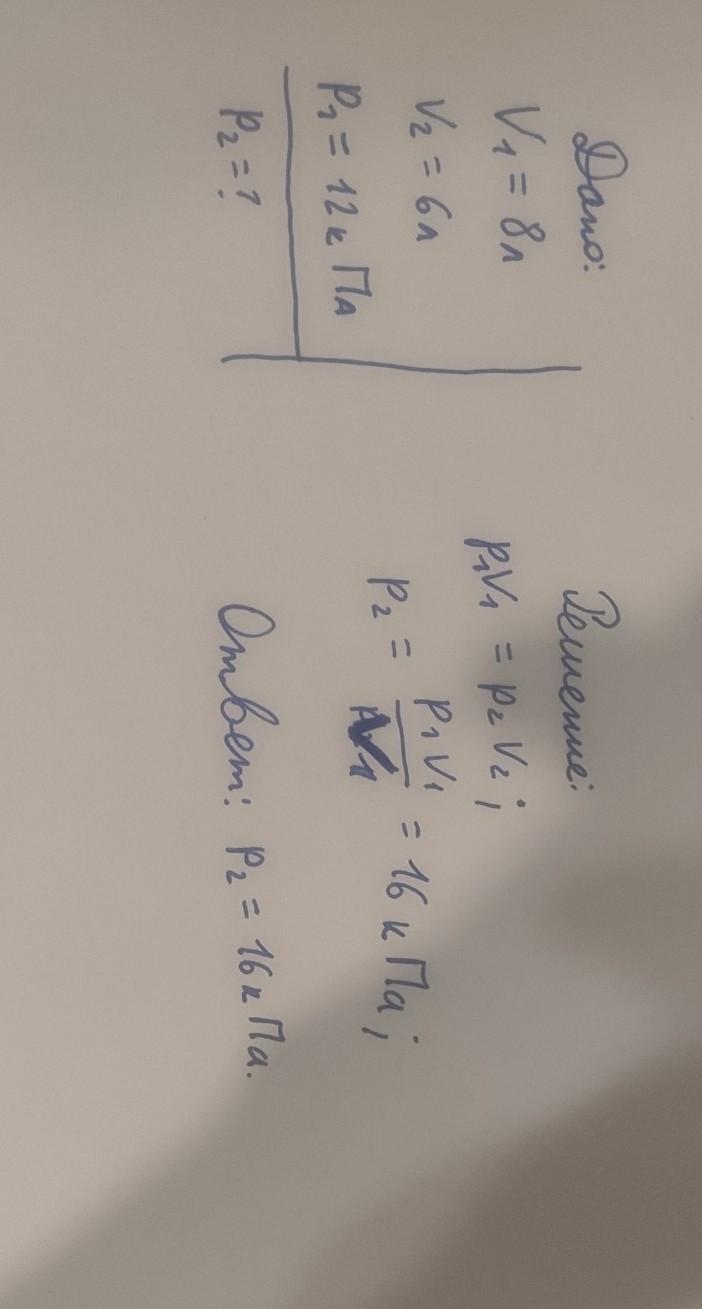 Дано:
V₁ = 8л
V₂ = 6л
P₁ = 12кПа
P₂ = ?
Решение:
P₁V₁ = P₂V₂;
P₂ = P₁V₁ / V₁ = 16кПа;
Ответ: P₂ = 16кПа.